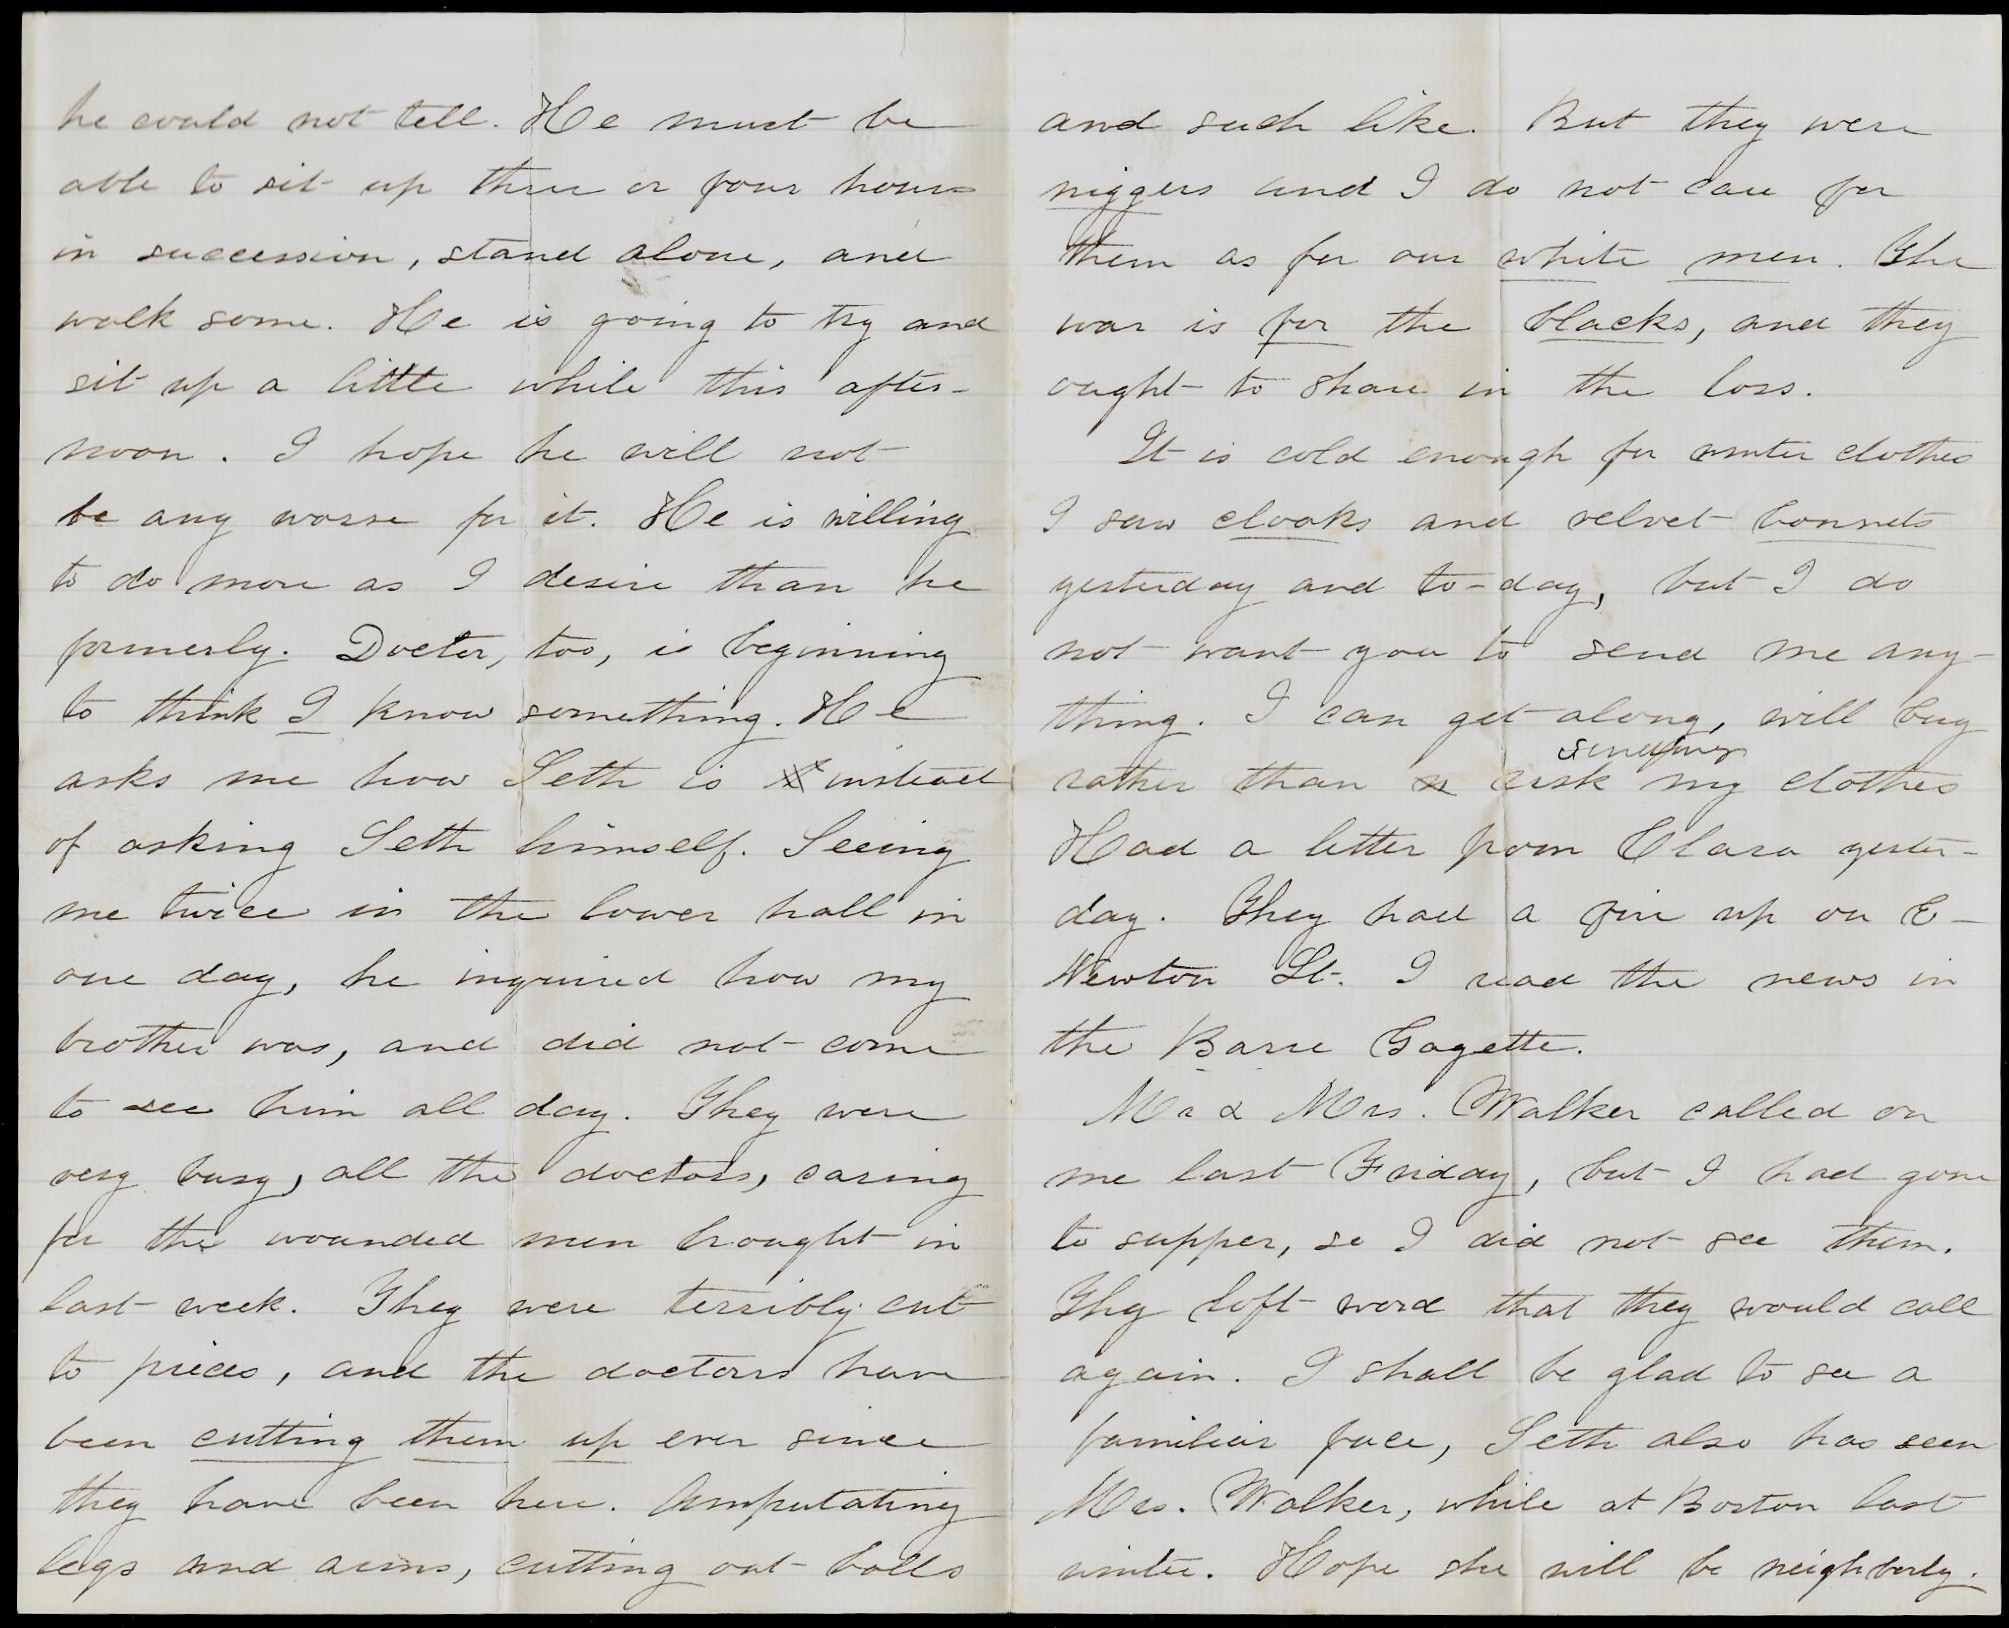 he could not tell. He must be
able to sit up three or four hours
in succession, stand alone, and
walk some. He is going to try and
sit up a little while this after-
noon. I hope he will not
be any worse for it. He is willing
to do more as I desire than he
formerly. Docter, too, is beginning
to think I know something. He
asks me how Seth is instead
of asking Seth himself. Seeing
me twice in the lower hall in
one day, he inquired how my
brother was, and did not come
to see him all day. They were
very busy, all the doctors, caring
for the wounded men brought in
last week. They were terribly cut
to pieces, and the doctors have
been cutting them up ever since
they have been here. Amputating
legs and arms, cutting out balls
and such like. But they were
niggers and I do not care for
them as for our white men. The
war is for the blacks, and they
ought to share in the loss.
It is cold enough for winter clothes
I saw cloaks and velvet bonnets
yesterday and to-day, but I do
not want you to send me any-
thing. I can get along, will buy
sending
rather than risk my clothes
Had a letter from Clara yester-
day. They had a fire up on E-
Newton St. I read the news in
the Barre Gazette.
Mr & Mrs. Walker called on
me last Friday, but I had gone
to supper, so I did not see them.
Thy left word that they would call
again. I shall be glad to see a
familiar face, Seth also has seen
Mrs. Walker, while at Boston last
winter. Hope she will be neighborly.